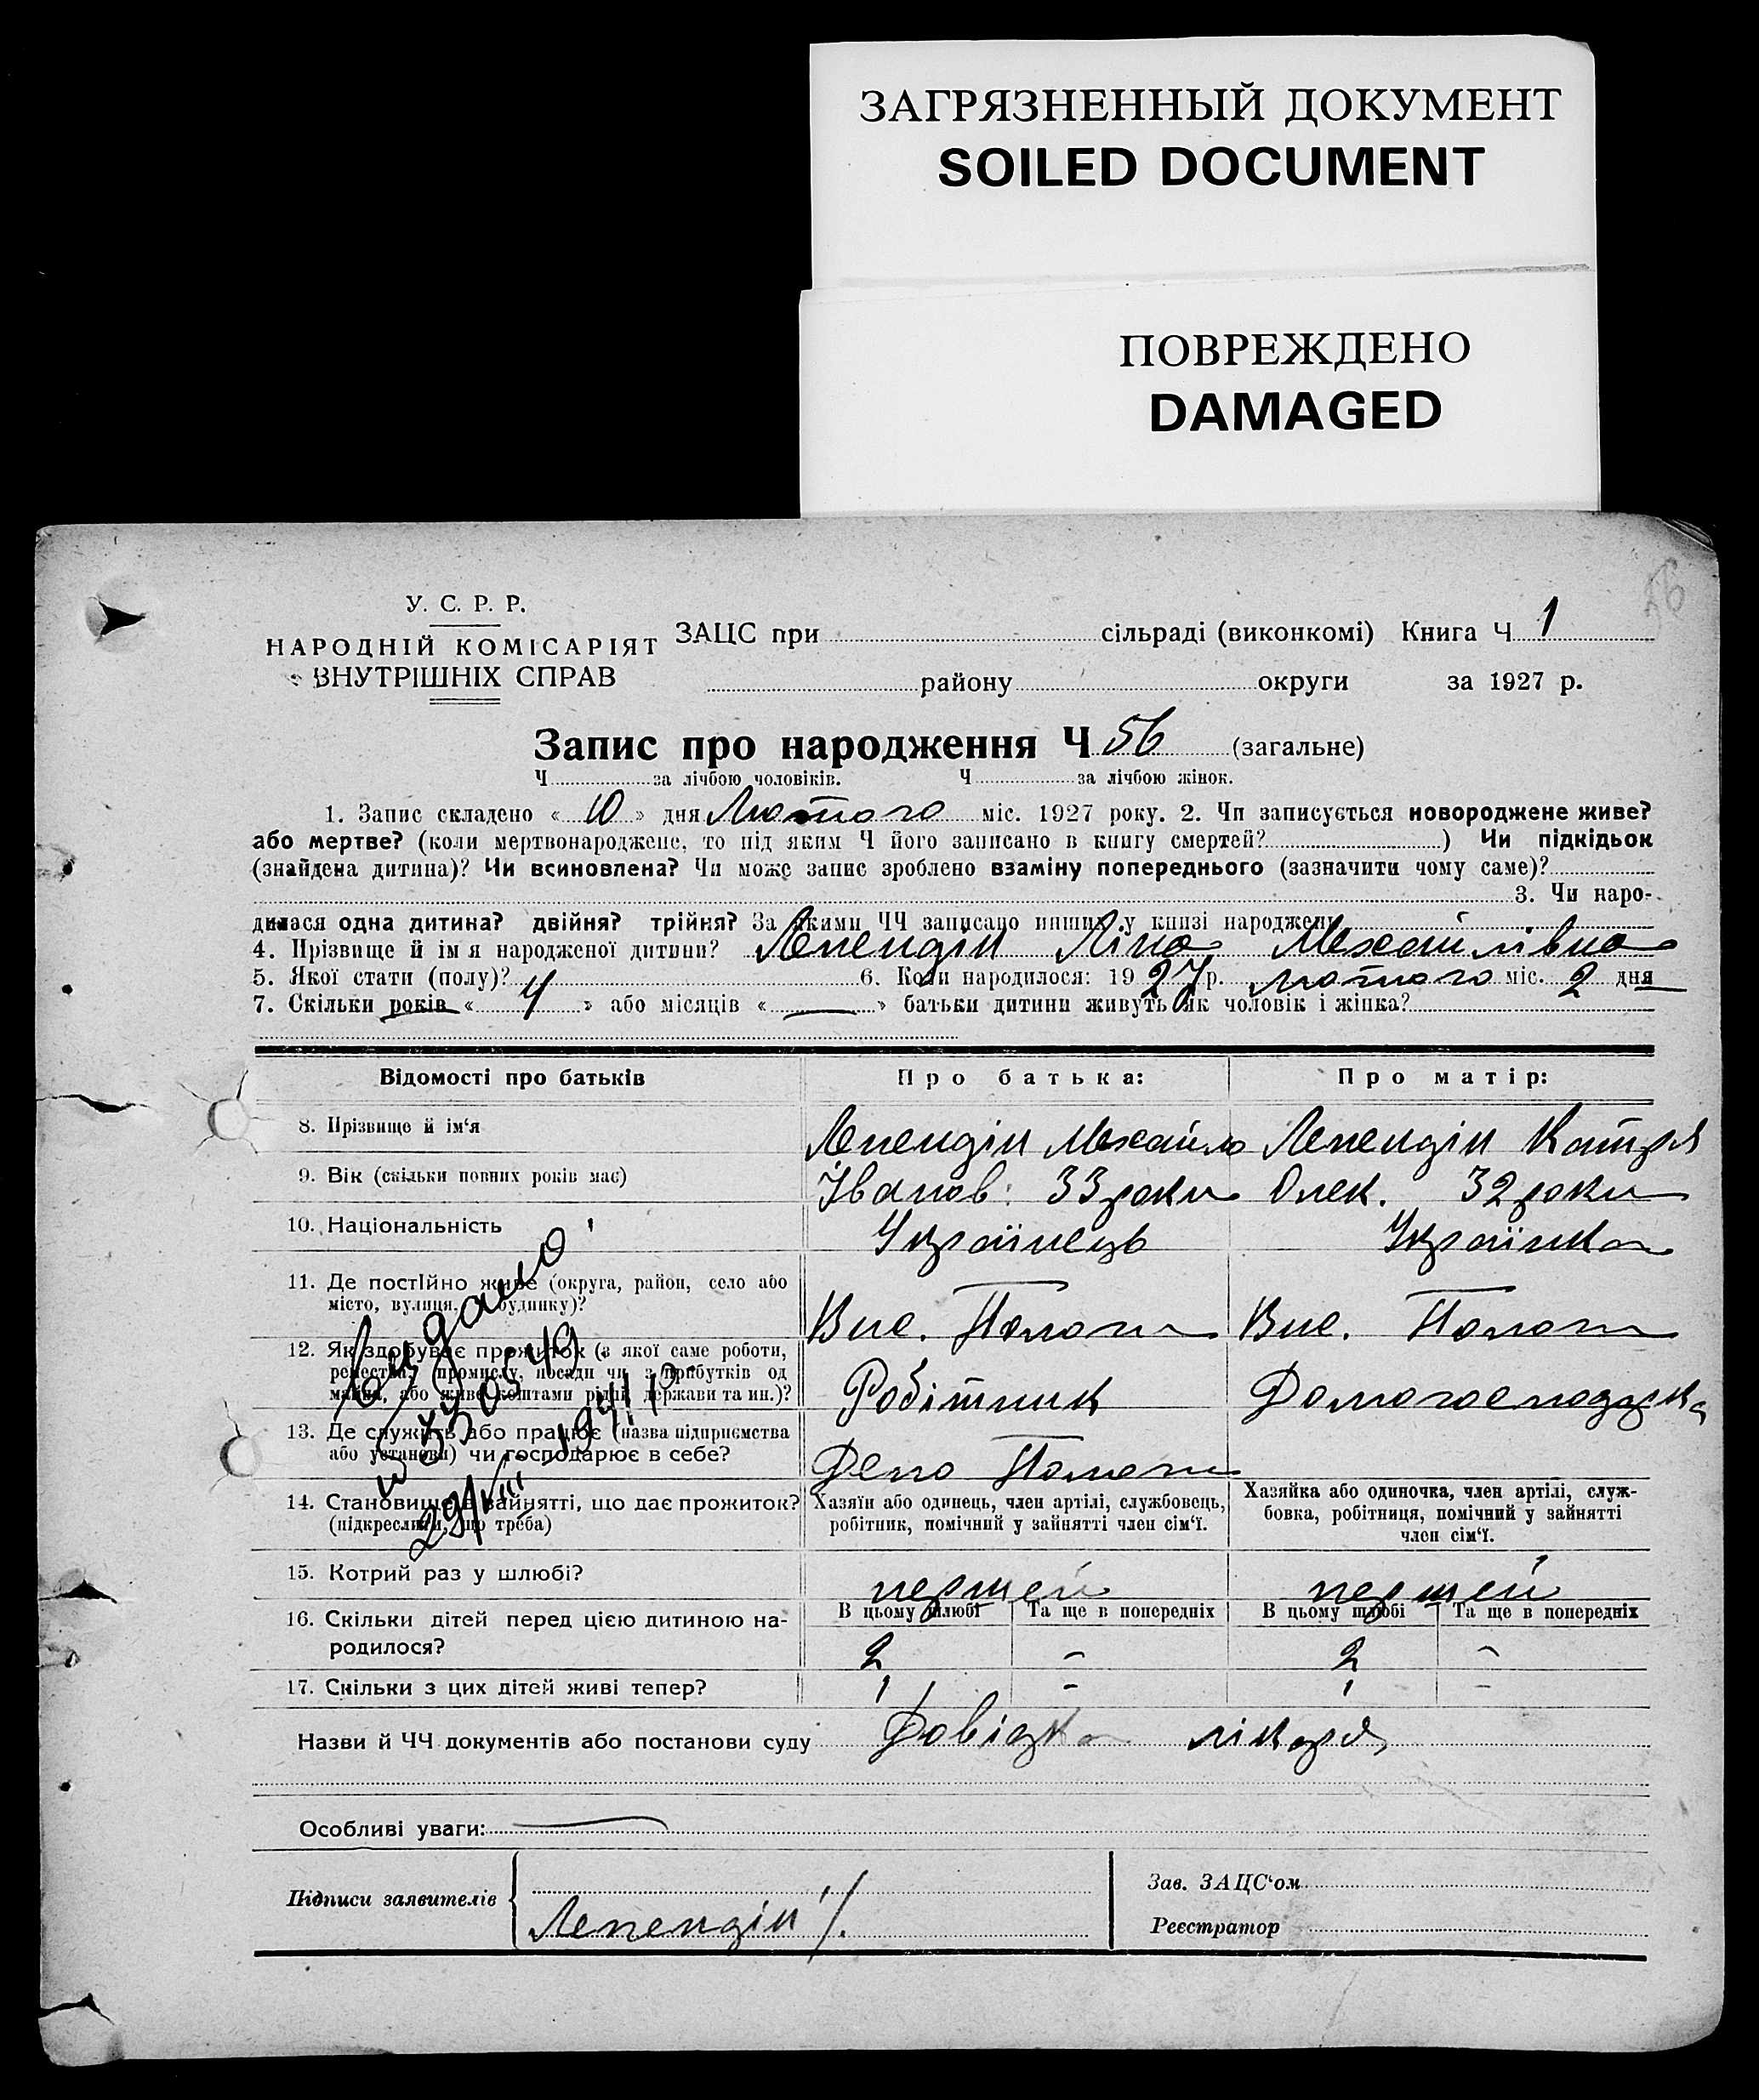 ЗАГРЯЗНЕННЫЙ ДОКУМЕНТ
SOILED DOCUMENT
ПОВРЕЖДЕНО
DAMAGED
56
У. С. Р. Р.
НАРОДНІЙ КОМІСАРІЯТ
ВНУТРІШНІХ СПРАВ
ЗАЦС при сільраді (виконкомі) Книга Ч 1
району округи за 1927 р.
Запис про народження Ч 56 (загальне)
Ч за лічбою чоловіків. Ч за лічбою жінок.
1. Запис складено « 10 » дня Лютого міс. 1927 року. 2. Чи записується новороджене живе?
або мертве? (коли мертвонароджене, то під яким Ч його записано в книгу смертей? ) Чи підкідьок
(знайдена дитина)? Чи всиновлена? Чи може запис зроблено взаміну попереднього (зазначити чому саме)?
3. Чи наро-
дилася одна дитина? двійня? трійня? За якими ЧЧ записано инших у книзі народжень
4. Прізвище й ім'я народженої дитини? Лепендін Ліна Михайлівна
5. Якої стати (полу)? 6. Коли народилося: 1927 р. лютого міс. 2 дня
7. Скільки років « 4 » або місяців « — » батьки дитини живуть як чоловік і жінка?
Відомості про батьків Про батька: Про матір:
8. Прізвище й ім'я Лепендін Михайло Лепендін Катря
9. Вік (скільки повних років має) Іванов. 33 роки Олек. 32 роки
10. Національність Українець Українка
11. Де постІйно живе (округа, район, село або
місто, вулиця, будинку)? Вис. Пологи Вис. Пологи
12. Як здобуває прожиток (з якої саме роботи,
ремества, промислу, посади чи з прибутків од
майна, або живе коштами рідні, держави та ин.)? Робітник Домогосподарка
13. Де служить або працює (назва підприємства
або установи) чи господарює в себе? Депо Пологи
14. Становище в зайнятті, що дає прожиток?
(підкреслити, що треба)
Хазяїн або одинець, член артілі, службовець,
робітник, помічний у зайнятті член сім'ї.
Хазяйка або одиночка, член артілі, служ-
бовка, робітниця, помічний у зайнятті
член сім'ї.
Видано
29/VIII 1941 р.
15. Котрий раз у шлюбі? першей першей
В цьому шлюбі Та ще в попередніх В цьому шлюбі Та ще в попередніх
16. Скільки дітей перед цією дитиною на-
родилося? 2 - 2 -
17. Скільки з цих дітей живі тепер? 1 - 1 -
Назви й ЧЧ документів або постанови суду Довідка лікаря
Особливі уваги: —
Підписи заявителів Лепендін
Зав. ЗАЦС'ом
Реєстратор